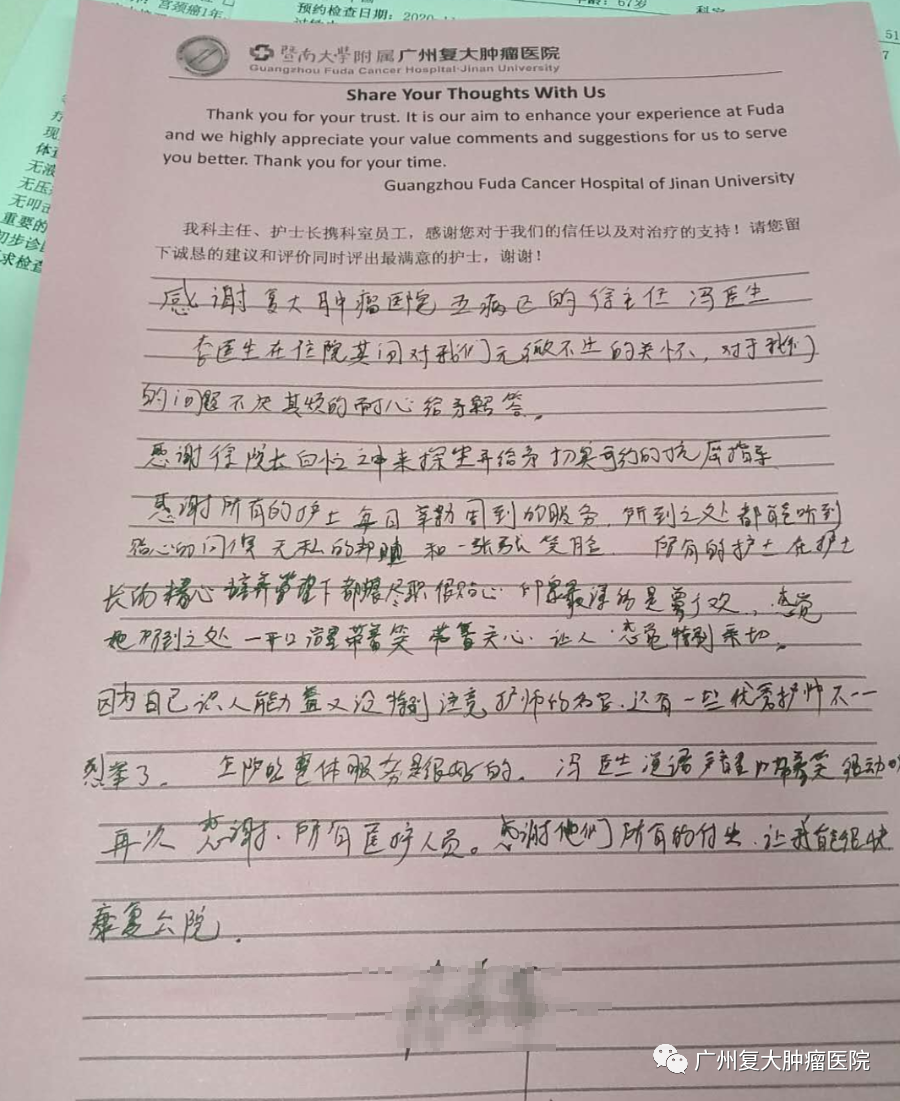 宫颈癌1年
预约检查日期：2020
67岁
无压
无叩击
重要的
初步诊
求检查
暨南大學附属广州复大肿瘤医院
Guangzhou Fuda Cancer Hospital·Jinan University
Share Your Thoughts With Us
Thank you for your trust. It is our aim to enhance your experience at Fuda
and we highly appreciate your value comments and suggestions for us to serve
you better. Thank you for your time.
Guangzhou Fuda Cancer Hospital of Jinan University
我科主任、护士长携科室员工，感谢您对于我们的信任以及对治疗的支持！请您留
下诚恳的建议和评价同时评出最满意的护士，谢谢！
感谢复大肿瘤医院五病区的徐主任 冯医生
李医生在住院其间对我们无微不至的关怀，对于我们
的问题不厌其烦的耐心给予解答。
感谢徐院长百忙之中来探望并给予切实可行的抗癌指导
感谢所有的护士每日辛勤周到的服务，所到之处都能听到
贴心的问候 无私的帮助 和一张张笑脸 所有的护士在护士
长的精心培养管理下都很尽职很贴心 印象最深的是 欢，感觉
她所到之处 一开口 带着笑 带着关心 让人感觉特别亲切。
因为自己识人能力差又没特别注意护师的名字，还有一些优秀护师不一一
烈举了。 全院的整体服务是很好的。 冯医生说话声音 带着笑 很动
再次感谢所有医疗人员。感谢他们所有的付出，让我能很快
康复出院。
广州复大肿瘤医院